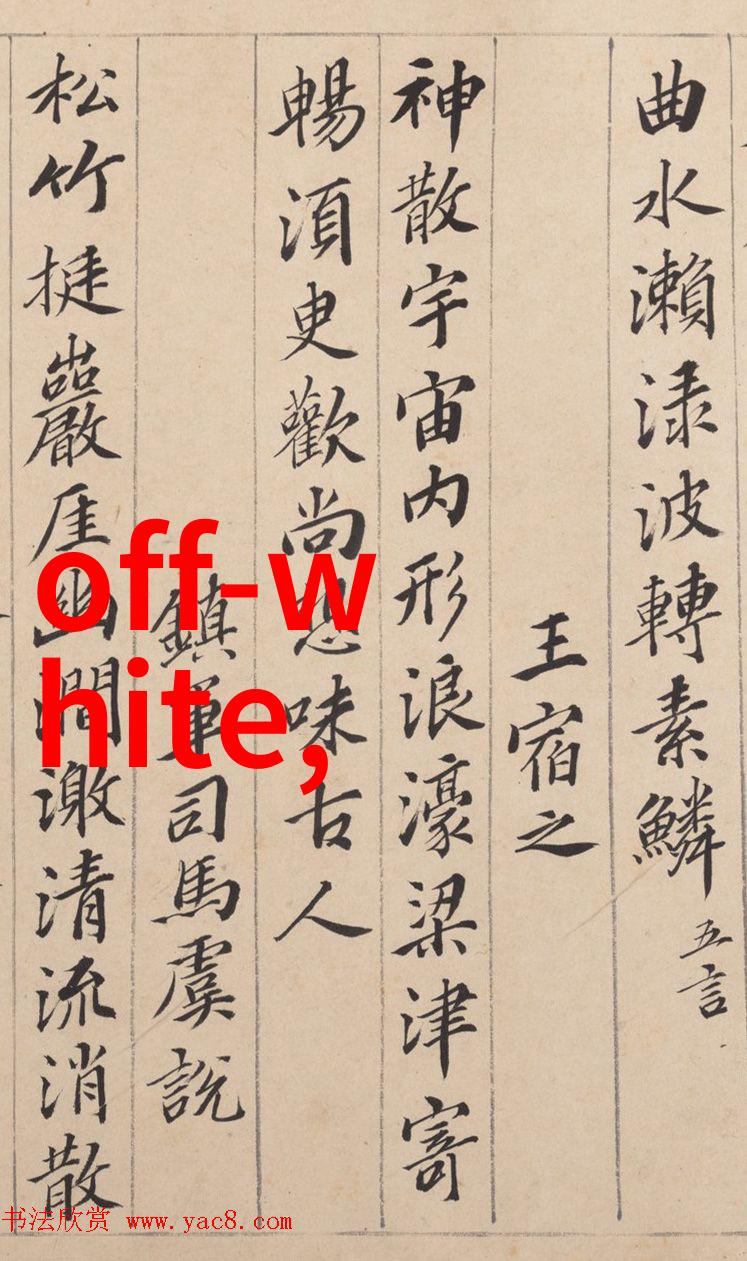 曲水瀨渌波轉素鱗 五言
王宿之
神散宇宙内形浪濠梁津寄
暢湏臾歡尚想味古人
鎮軍司馬虞說
松竹挺巖厓幽澗激清流消散
off-w
hite,
书法欣赏 www.yac8.com